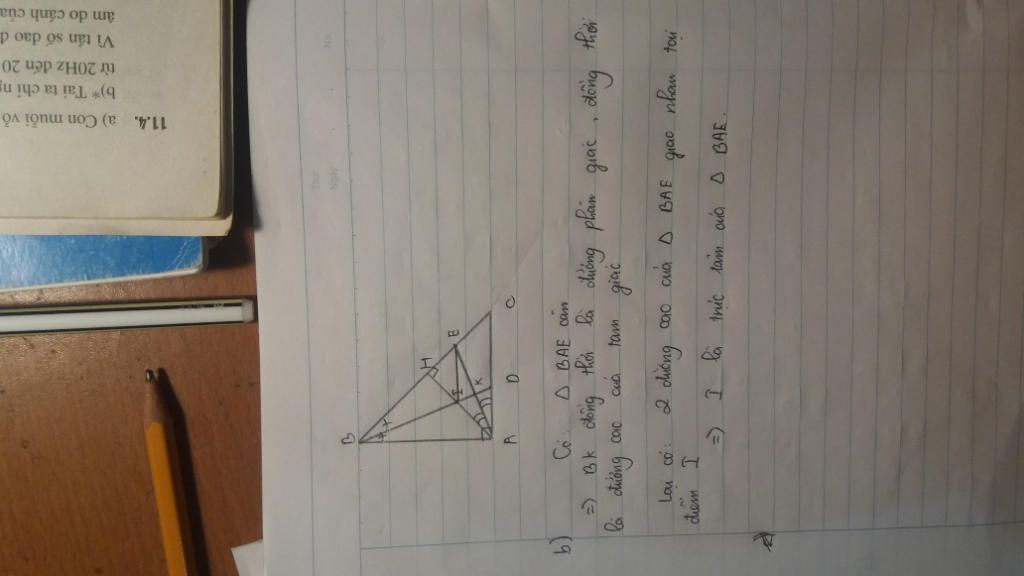 11.4. a) Con muỗi vỗ
b)* Tai ta chỉ
từ 20Hz đến 20
Vì tần số dao
âm do cánh của
Thứ
Ngày
No.
B
H
E
I
K
A
D
C
b) Có: Δ BAE cân
=> BK đồng thời là đường phân giác, đồng thời
là đường cao của tam giác
Lại có: 2 đường cao của Δ BAE giao nhau tại
điểm I
=> I là trực tâm của Δ BAE.
c)